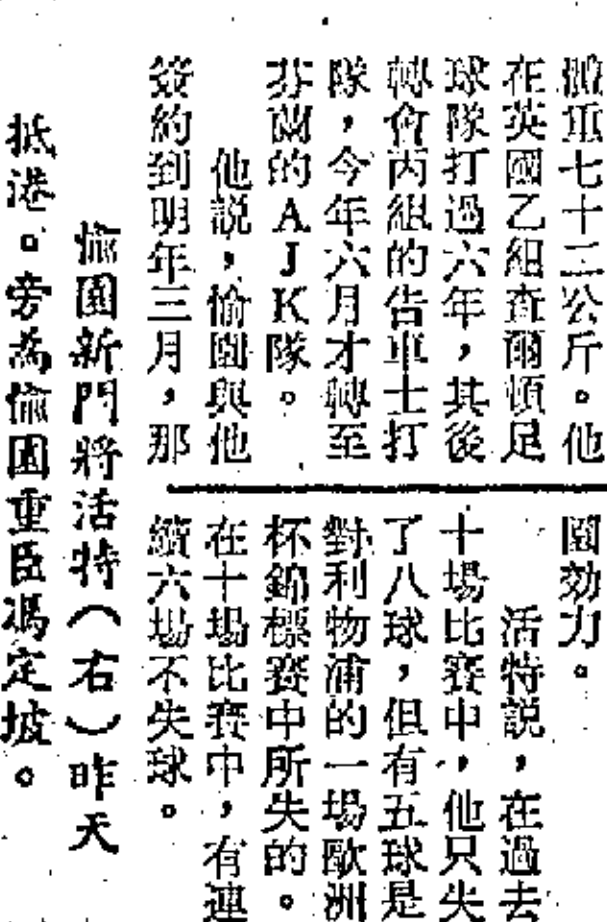 體重七十二公斤。他
在英國乙組查爾頓足
球隊打過六年，其後
轉會丙組的告車士打
隊，今年六月才轉至
芬蘭的AJK隊。
他說，愉園與他
簽約到明年三月，那
園効力。
活特說，在過去
十場比賽中，他只失
了八球，但有五球是
對利物浦的一場歐洲
杯錦標賽中所失的。
在十場比賽中，有連
續六場不失球。
愉園新門將活特（右）昨天
抵港。旁為愉園重臣馮定坡。